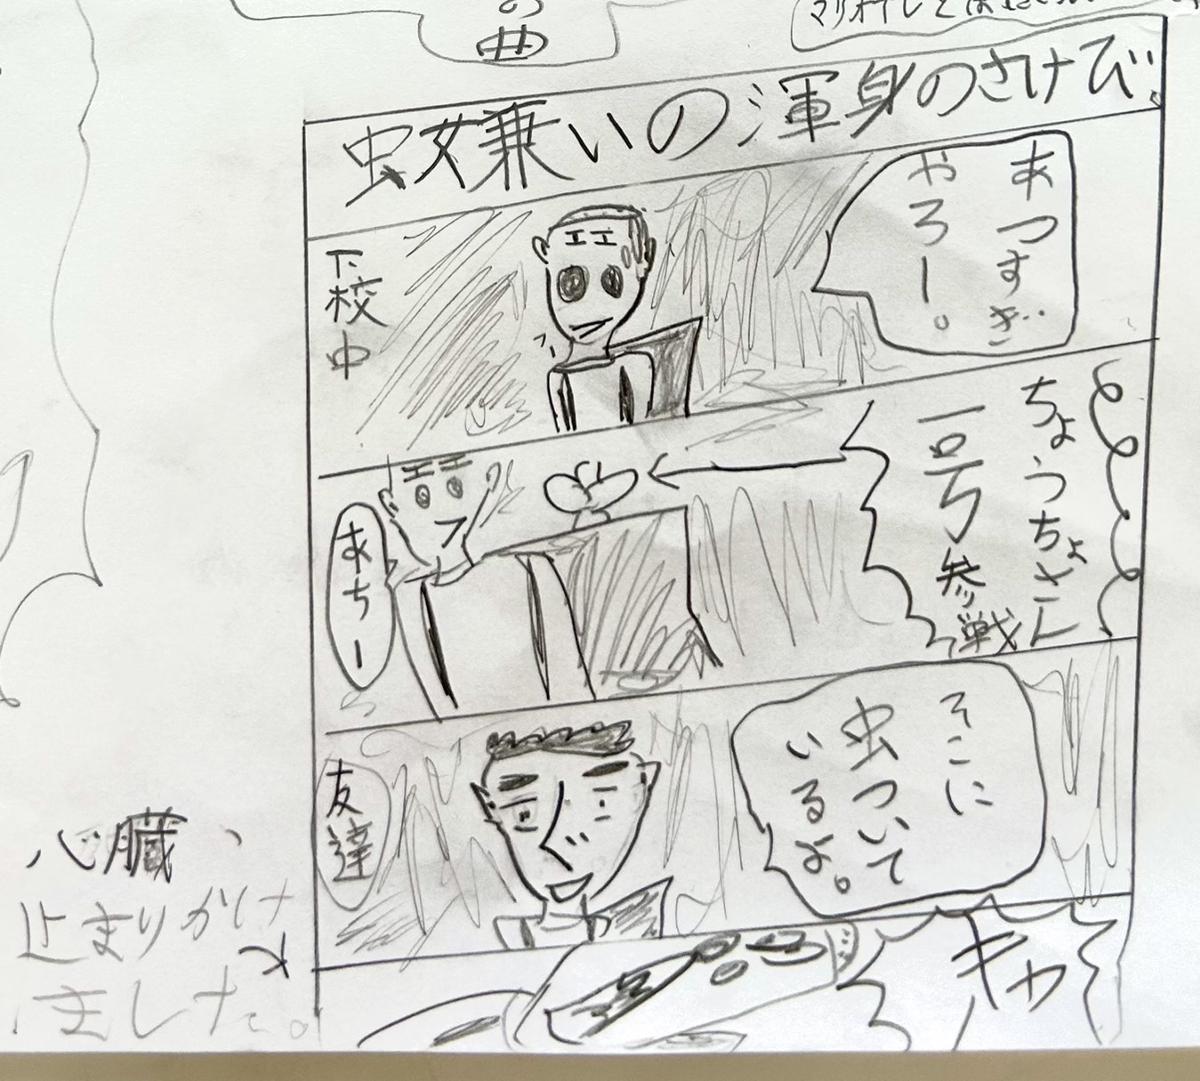 の
曲
虫嫌いの渾身のさけび
あつすぎ
やろー。
下校中
ちょうちょさん
一号参戦
あちー
そこに
虫ついて
いるよ。
友達
キャ
心臓、
止まりかけ
ました。